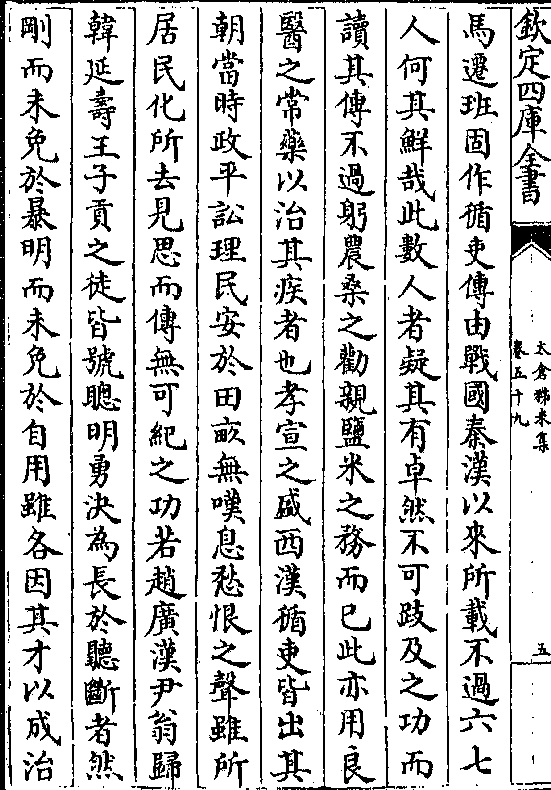 欽定四庫全書
太倉稊米集
卷五十九
五
馬遷班固作循吏傳由戰國秦漢以來所載不過六七
人何其鮮哉此數人者疑其有卓然不可跂及之功而
讀其傳不過躬農桑之勸親鹽米之務而已此亦用良
醫之常藥以治其疾者也孝宣之盛西漢循吏皆出其
朝當時政平訟理民安於田畝無嘆息愁恨之聲雖所
居民化所去見思而傳無可紀之功若趙廣漢尹翁歸
韓延壽王子貢之徒皆號聰明勇決為長於聽斷者然
剛而未免於暴明而未免於自用雖各因其才以成治